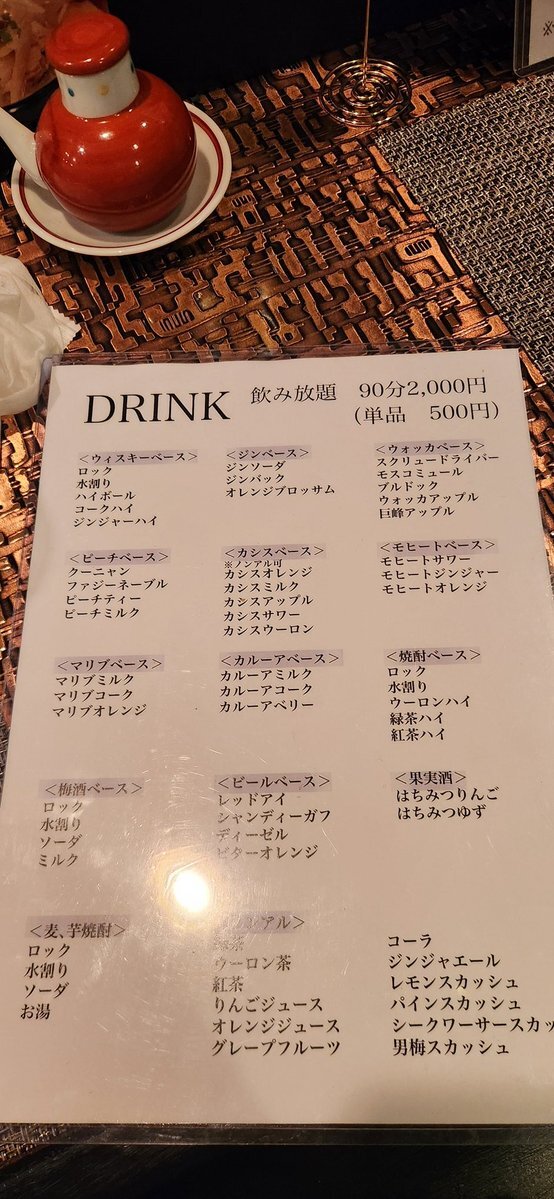 DRINK 飲み放題 90分2,000円
(単品 500円)
<ウィスキーベース>
ロック
水割り
ハイボール
コークハイ
ジンジャーハイ
<ジンベース>
ジンソーダ
ジンバック
オレンジブロッサム
<ウォッカベース>
スクリュードライバー
モスコミュール
ブルドック
ウォッカアップル
巨峰アップル
<ピーチベース>
クーニャン
ファジーネーブル
ピーチティー
ピーチミルク
<カシスベース>
※ノンアル可
カシスオレンジ
カシスミルク
カシスアップル
カシスサワー
カシスウーロン
<モヒートベース>
モヒートサワー
モヒートジンジャー
モヒートオレンジ
<マリブベース>
マリブミルク
マリブコーク
マリブオレンジ
<カルーアベース>
カルーアミルク
カルーアコーク
カルーアベリー
<焼酎ベース>
ロック
水割り
ウーロンハイ
緑茶ハイ
紅茶ハイ
<梅酒ベース>
ロック
水割り
ソーダ
ミルク
<ビールベース>
レッドアイ
シャンディーガフ
ディーゼル
ビターオレンジ
<果実酒>
はちみつりんご
はちみつゆず
<麦、芋焼酎>
ロック
水割り
ソーダ
お湯
アル>
緑茶
ウーロン茶
紅茶
りんごジュース
オレンジジュース
グレープフルーツ
コーラ
ジンジャエール
レモンスカッシュ
パインスカッシュ
シークワーサースカッ
男梅スカッシュ